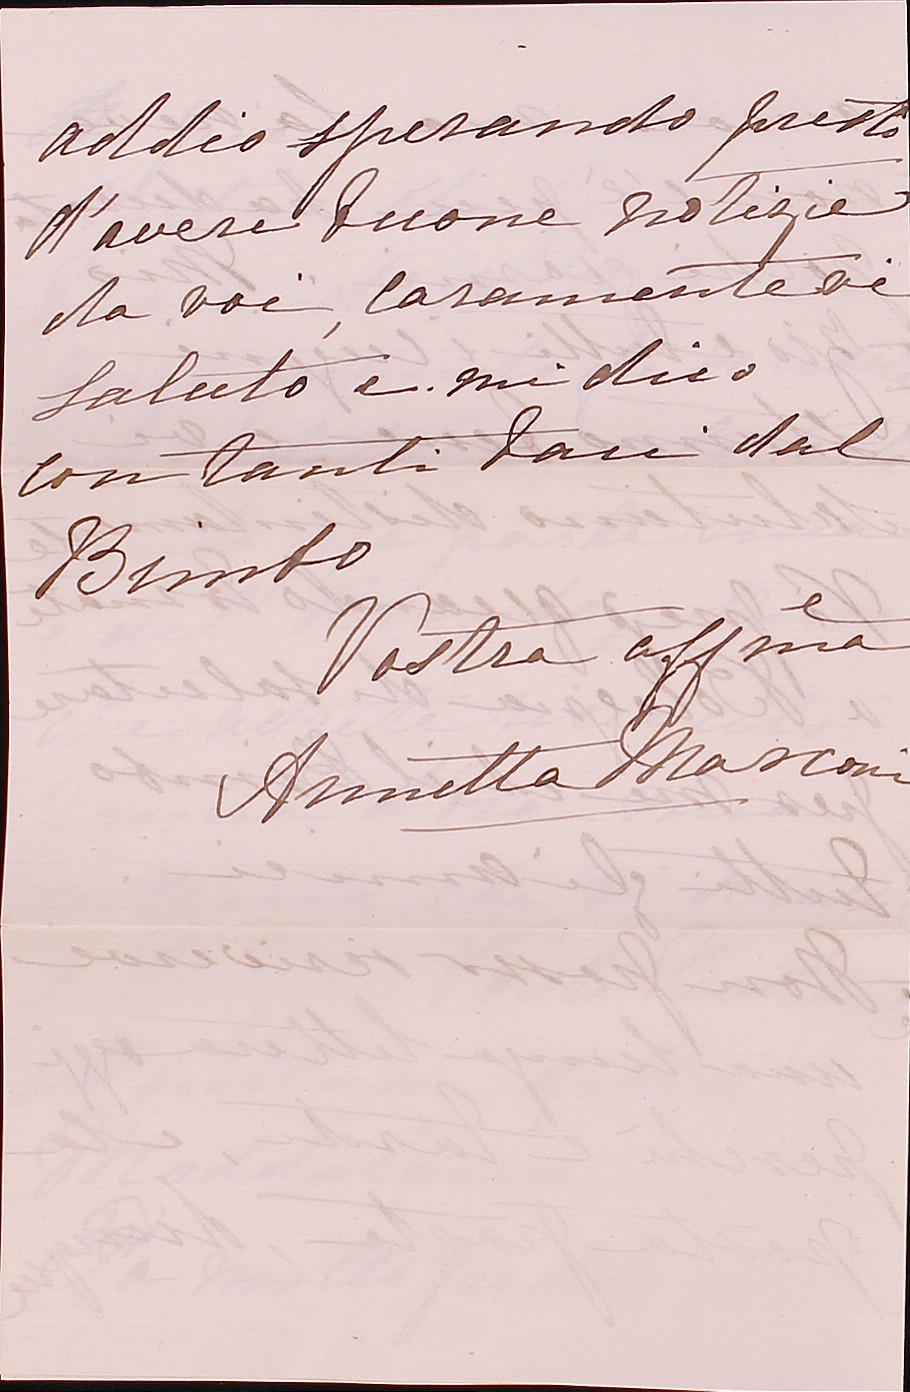 addio sperando presto
d'avere buone notizie
da voi, caramente vi
saluto e mi dico
con tanti baci dal
Bimbo
Vostra affma
Annetta Marconi